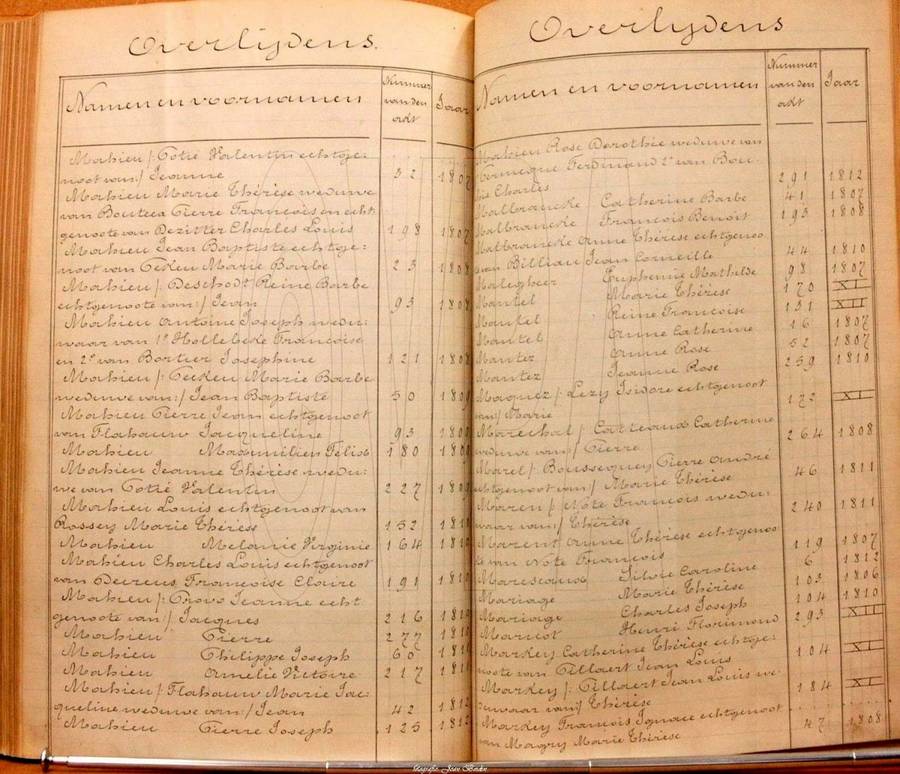 Overlijdens.
Namen en voornamen
Nummer van den adt
Jaar
Mahieu /: Cotié Valentin echtge:
noot van:/ Jeanne 32 1807
Mahieu Marie Thérèse weduwe
van Bouteca Pierre François en echt
genoote van Dezitter Charles Louis 198 1807
Mahieu Jean Baptiste echtge:
noot van Gekeu Marie Barbe 23 1808
Mahieu /: Deschodt Reine Barbe
echtgenoote van:/ Jean 93 1808
Mahieu Antoine Joseph wedu:
waar van 1º Hollebeke Françoise
en 2º van Bortier Josephine 121 1808
Mahieu /: Geekeu Marie Barbe
weduwe van:/ Jean Baptiste 50
Mahieu Pierre Jean echtgenoot
van Flahauw Jacqueline 93
Mahieu Maximilien Félix 180
Mahieu Jeanne Thérèse wedu:
we van Cotié Valentin 227
Mahieu Louis echtgenoot van
Rossey Marie Thérèse 152
Mahieu Melanie Virginie 164
Mahieu Charles Louis echtgenoot
van Decreus Françoise Claire 191
Mahieu /: Provo Jeanne echt
genoote van:/ Jacques 216
Mahieu Pierre 277
Mahieu Philippe Joseph 60
Mahieu Amelie Victoire 217
Mahieu /: Flahauw Marie Jac:
queline weduwe van:/ Jean 42 1812
Mahieu Pierre Joseph 125 1812
Overlydens
Namen en voornamen
Nummer van den adt
Jaar
Mahieu Rose Dorothée weduwe van
Ferdinand 2º van Bou:
Charles 291 1812
Malbrancke Catherine Barbe 41 1807
Malbrancke François Benoit 193 1808
Malbrancke Anne Thérèse echtgenoo
van Billiau Jean Corneille 44 1810
Malegheer Euphemie Mathilde 98 1807
Mantel Marie Thérèse 170 XI
Mantel Reine Françoise 131 XII
Mantel Anne Catherine 16 1807
Mantez Anne Rose 52 1807
Mantez Jeanne Rose 259 1810
Maquez /: Lezy Isidore echtgenoot
van:/ Marie 173 XI
Marechal /: Catteaud Catherine
weduwe van:/ Pierre 264 1808
Marel /: Boussequey Pierre André
echtgenoot van:/ Marie Thérèse 46 1811
Maren /: Note François wedu:
waar van:/ Thérèse 240 1811
Marent Anne Thérèse echtgenoo
te van Note François 119 1807
Marescaud Silvie Caroline 6 1812
Mariage Marie Thérèse 103 1806
Mariage Charles Joseph 104 1810
Maricot Henri Florimond 293 XII
Markey Catherine Thérèse echtge:
noote van Tillaert Jean Louis 104 XI
Markey /: Tillaert Jean Louis we
duwaar van:/ Thérèse 184 XI
Markey François Ignace echtgenoot
van Magry Marie Thérèse 47 1808